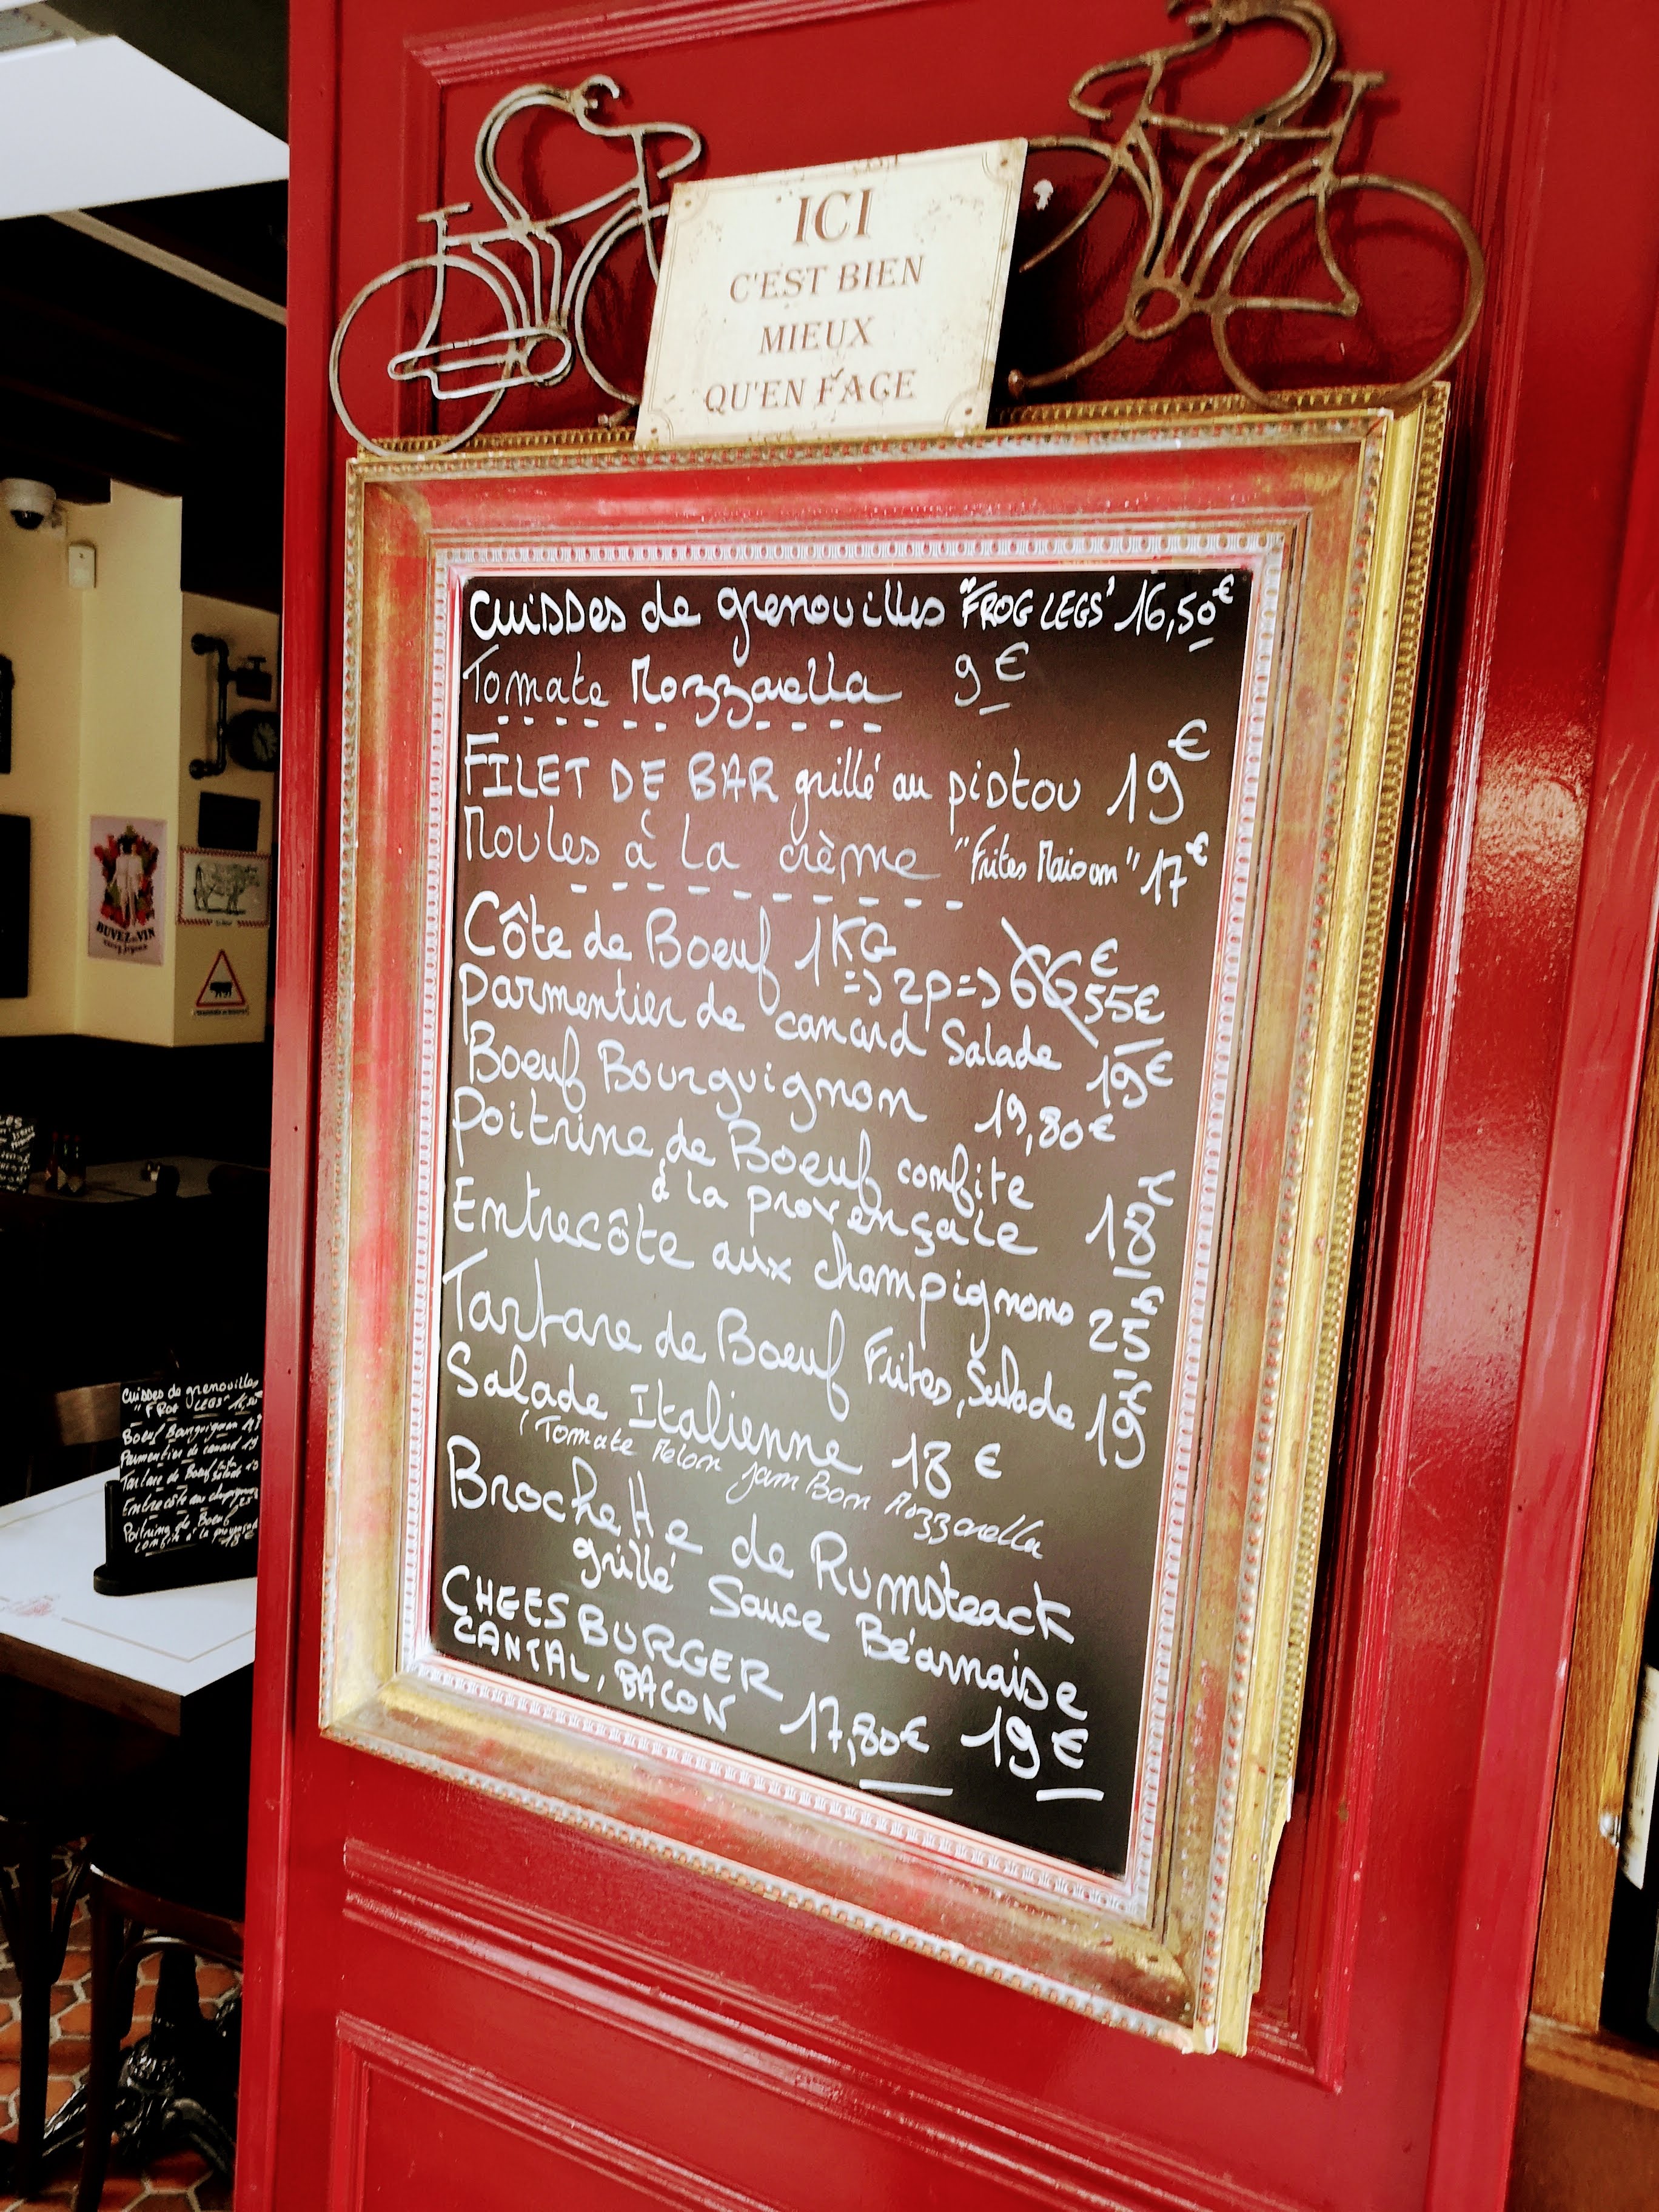 ICI
C'EST BIEN
MIEUX
QU'EN FACE
Cuisses de grenouilles "FROG LEGS" 16,50€
Tomate Mozzarella 9€
FILET DE BAR grillé au pistou 19€
Moules à la crème "Frites Maison" 17€
Côte de Boeuf 1KG
=> 2p => 66€ 55€
Parmentier de canard Salade 19€
Boeuf Bourguignon 19,80€
Poitrine de Boeuf confite
à la provençale 18€
Entrecôte aux champignons 25€
Tartare de Boeuf Frites, Salade 19€
Salade Italienne 18€
(Tomate Melon jamBon Mozzarella
Brochette de Rumsteack
grillé Sauce Béarnaise
19€
CHEESBURGER
CANTAL, BACON 17,80€
BUVEZ DU VIN
Cuisses de grenouilles
"FROG LEGS" 16,50
Boeuf Bourguignon
Parmentier de canard 19
Tartare de Boeuf
Entrecôte aux champignons
Poitrine de Boeuf
confite à la provençale
18€